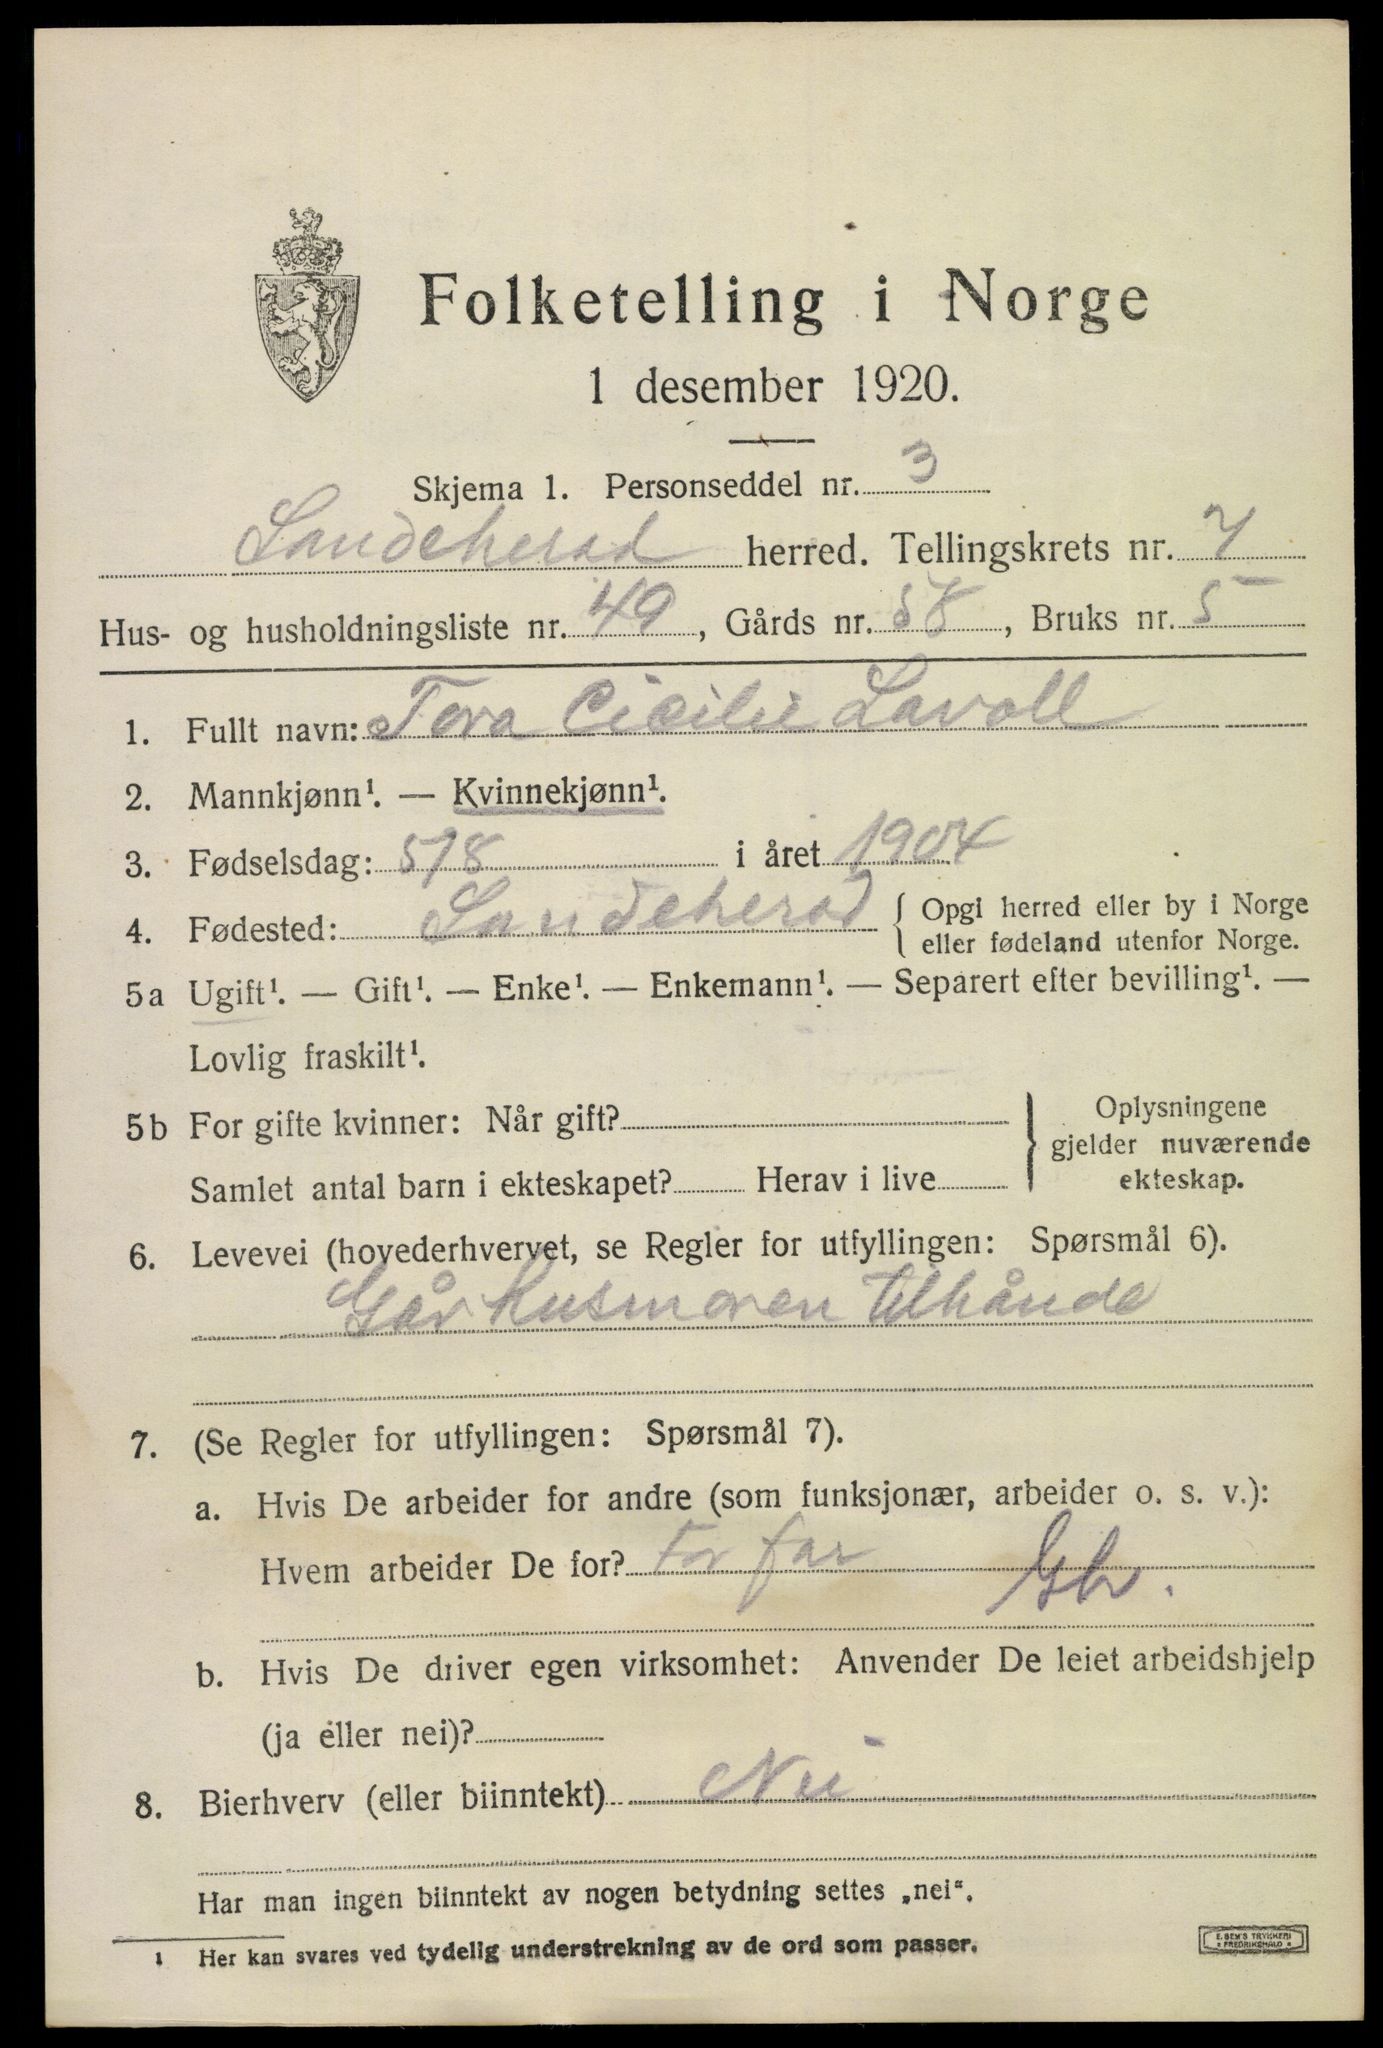 Folketelling i Norge
1 desember 1920.
Skjema 1. Personseddel nr. 3
Sandeherad herred. Tellingskrets nr. 7
Hus- og husholdningsliste nr. 49, Gårds nr. 58, Bruks nr. 5
1. Fullt navn: Tora Cicilie Lavoll
2. Mannkjønn¹. — Kvinnekjønn¹.
3. Fødselsdag: 5/8 i året 1904
4. Fødested: Sandeherad { Opgi herred eller by i Norge
eller fødeland utenfor Norge.
5a Ugift¹. — Gift¹. — Enke¹. — Enkemann¹. — Separert efter bevilling¹. —
Lovlig fraskilt¹.
5b For gifte kvinner: Når gift? } Oplysningene
gjelder nuværende
ekteskap.
Samlet antal barn i ekteskapet? Herav i live
6. Levevei (hovederhvervet, se Regler for utfyllingen: Spørsmål 6).
Går husmoren tilhånde
7. (Se Regler for utfyllingen: Spørsmål 7).
a. Hvis De arbeider for andre (som funksjonær, arbeider o. s. v.):
Hvem arbeider De for? For far
Gbr.
b. Hvis De driver egen virksomhet: Anvender De leiet arbeidshjelp
(ja eller nei)?
8. Bierhverv (eller biinntekt) Nei
Har man ingen biinntekt av nogen betydning settes „nei“.
1 Her kan svares ved tydelig understrekning av de ord som passer.
E. SEM'S TRYKKERI
FREDRIKSHALD